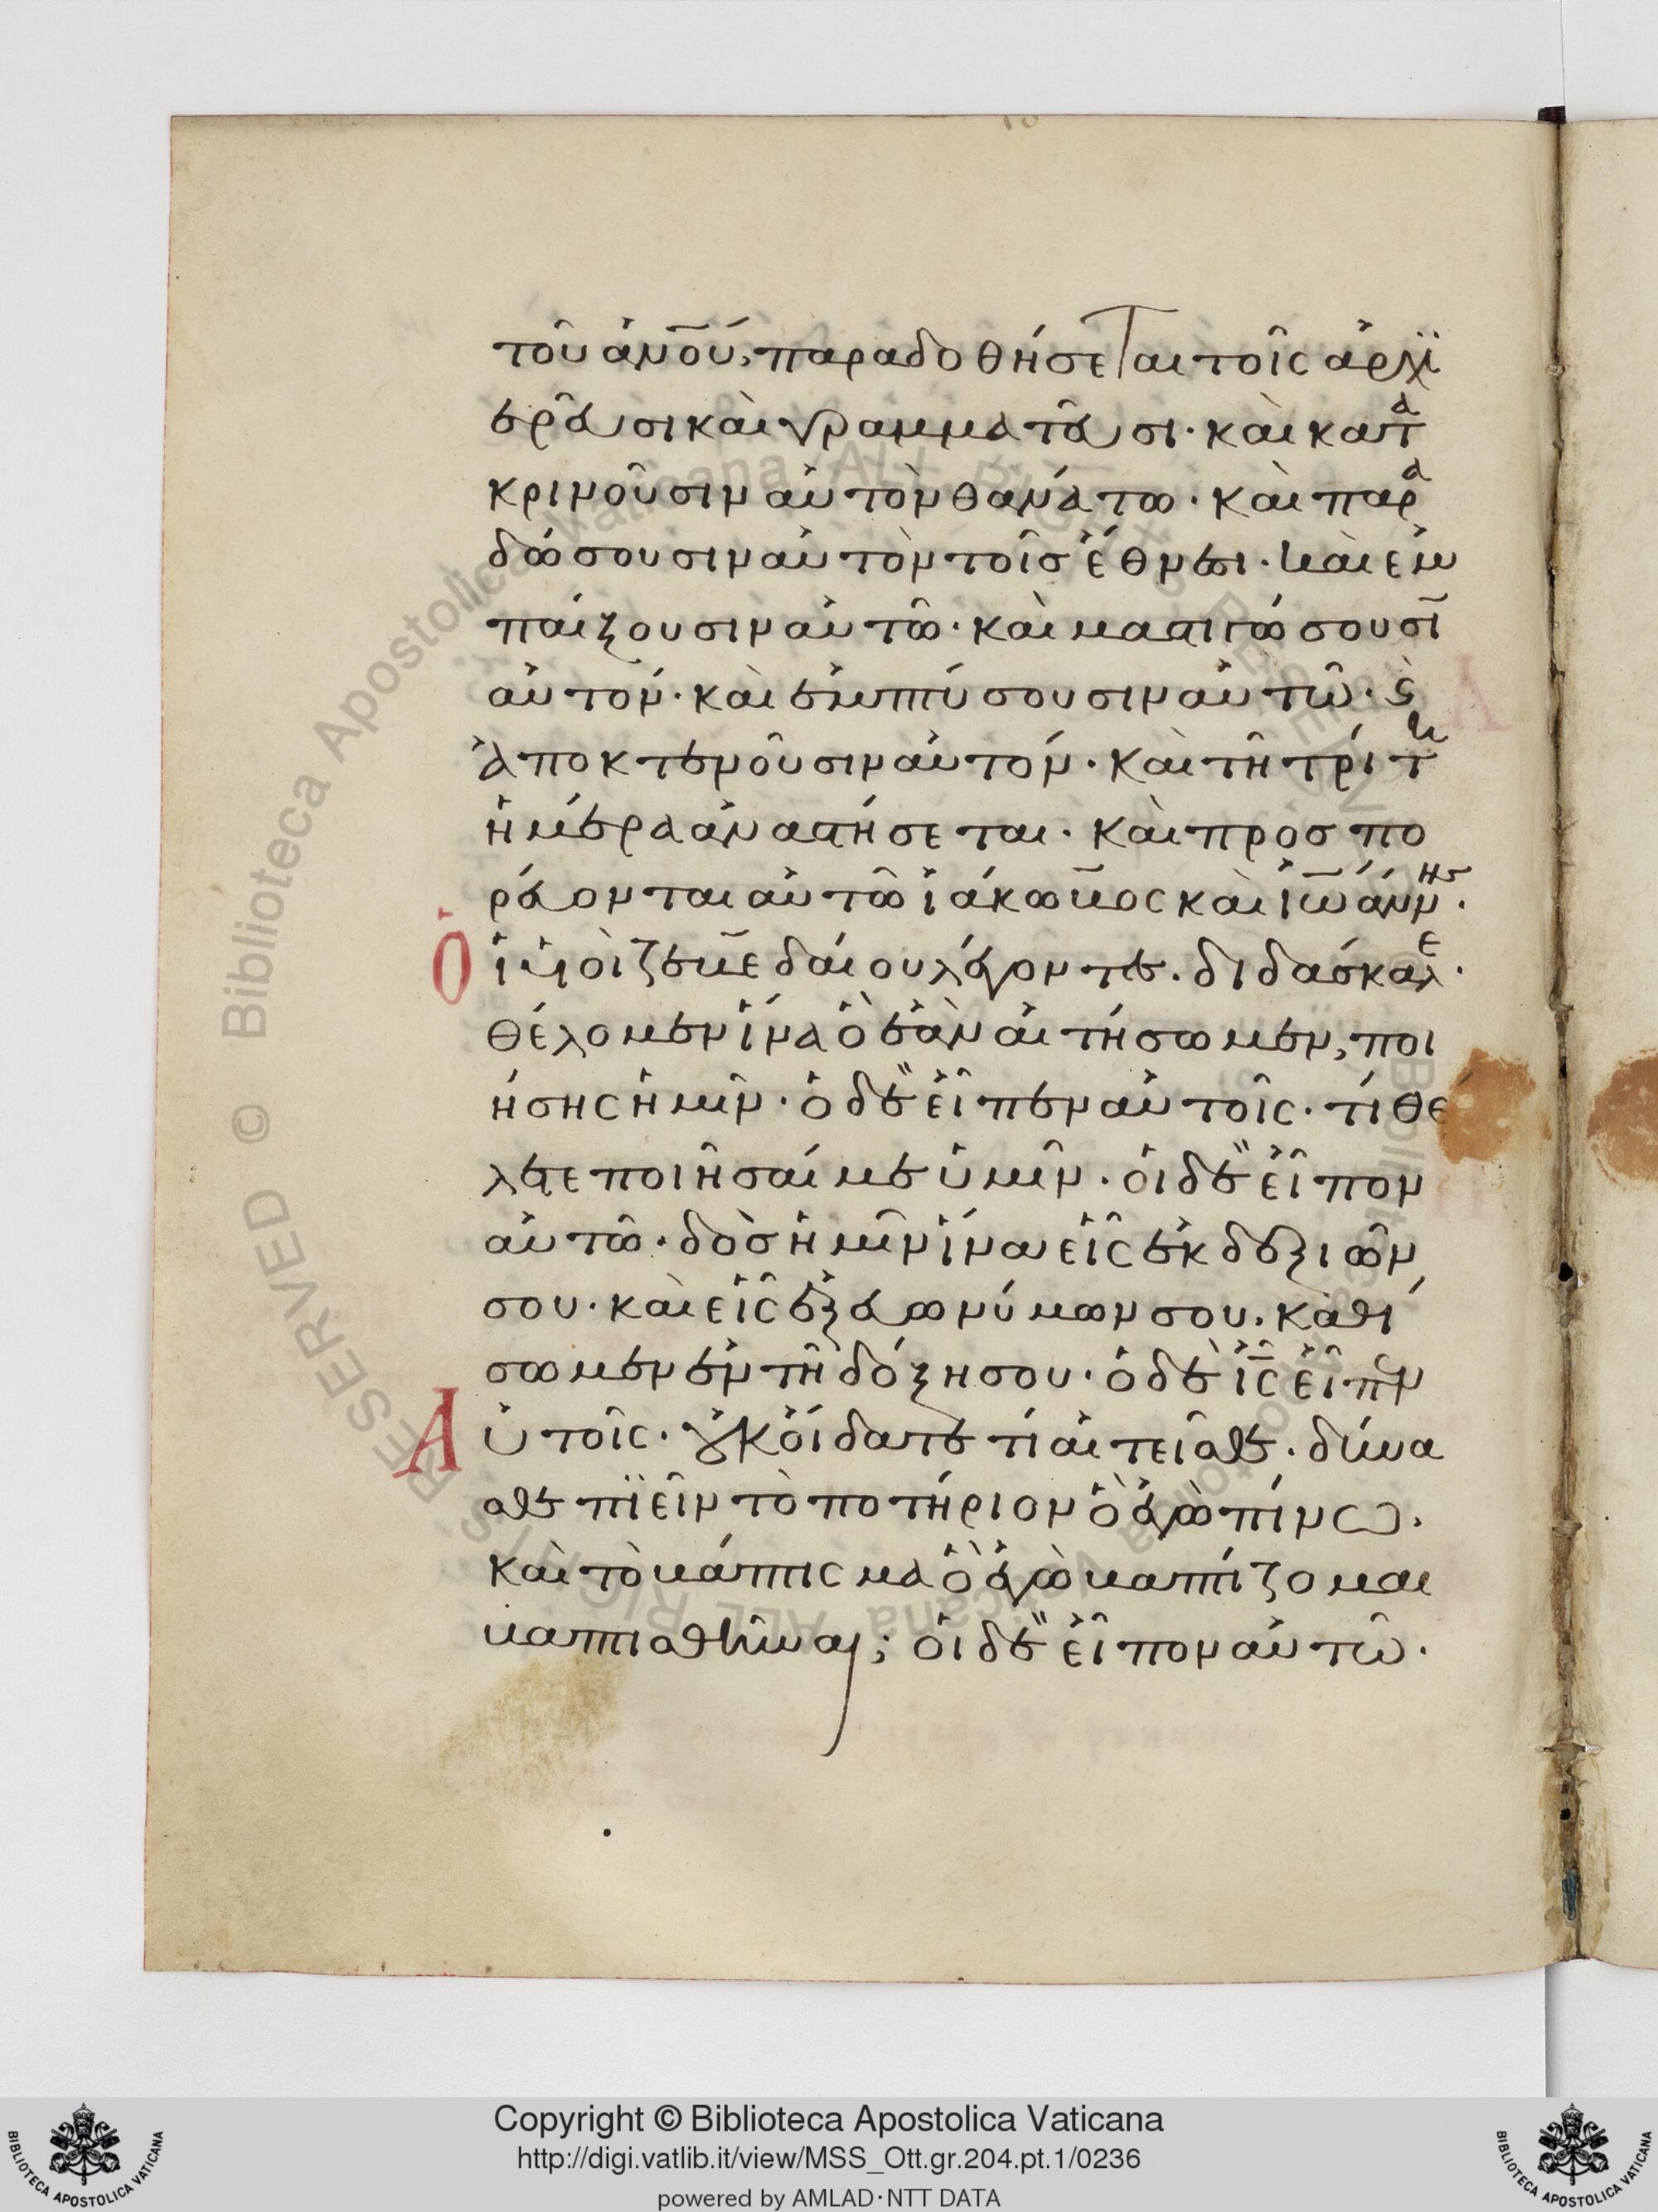 τοῦ ἀν̅ού, παραδοθήσεται τοῖς ἀρχϊ
ερεῦσι καὶ γραμματεῦσι· καὶ κατα
κρινοῦσιν αὐτὸν θανάτω· καὶ παρα
δώσουσιν αὐτὸν τοῖσ ἔθνεσι· καὶ ἐμ
παίξουσιν αὐτῶ· καὶ μαστιγώσουσῑ
αὐτόν· καὶ ἐμπτύσουσιν αὐτῶ· ϗ̀
ἀποκτενοῦσιν αὐτόν· καὶ τῆ τρίτη
ἡμέρα ἀναστήσεται· καὶ προσπο
ρεύονται αὐτῶ ἰάκωβος καὶ ἰω̅άννησ·
Ὁι ὑιοὶ ζεβεδαίου λέγοντες· διδάσκαλε·
θέλομεν ἵνα ὃ ἐὰν αἰτήσωμεν, ποι
ήσης ἡμῖν· ὁ δὲ εἶπεν αὐτοῖς· τί θέ
λετε ποιῆσαί με ὑμῖν· ὁι δὲ εἶπον
αὐτῶ· δὸσ ἡμῖν ἵνα εἷς ἐκ δεξιῶν
σου· καὶ εἷς ἐξ ἐυωνύμων σου. καθί
σωμεν ἐν τῆ δόξη σου· ὁ δὲ ἰ̅ς̅ εἶπεν
Αὐτοῖς· οὐκ οἴδατε τί αἰτεῖσθε· δύνα
σθε πϊεῖν τὸ ποτήριον ὃ ἐγὼ πίνω·
καὶ τὸ βάπτισμα ὃ ἐγὼ βαπτίζομαι
βαπτισθῆναι; ὁι δὲ εἶπον αὐτῶ·
RESERVED © Biblioteca Apostolica Vaticana. ALL RIGHTS RESERVED
BIBLIOTECA APOSTOLICA VATICANA
Copyright © Biblioteca Apostolica Vaticana
http://digi.vatlib.it/view/MSS_Ott.gr.204.pt.1/0236
powered by AMLAD·NTT DATA
BIBLIOTECA APOSTOLICA VATICANA